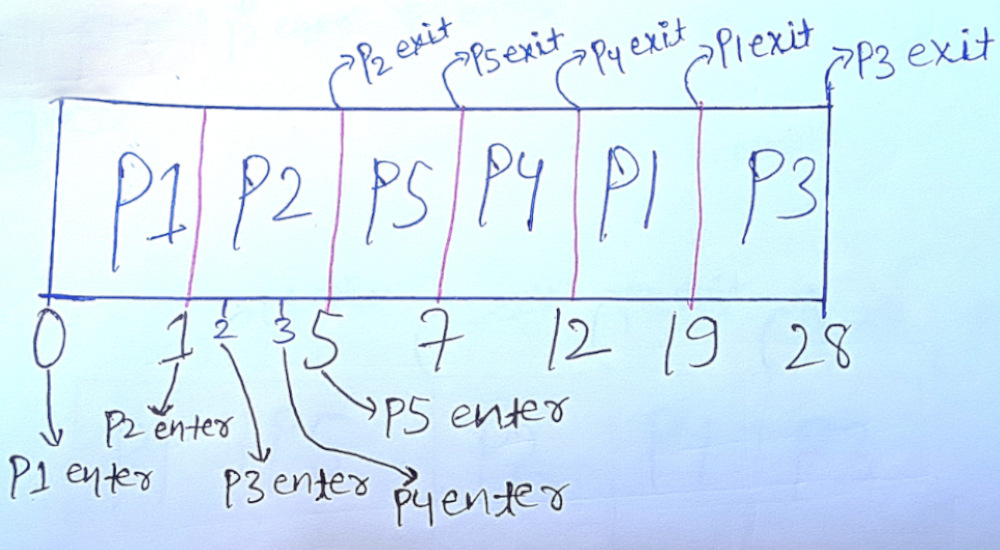 P2 exit P5 exit P4 exit P1 exit P3 exit
P1 P2 P5 P4 P1 P3
0 1 2 3 5 7 12 19 28
P2 enter P5 enter
P1 enter P3 enter P4 enter